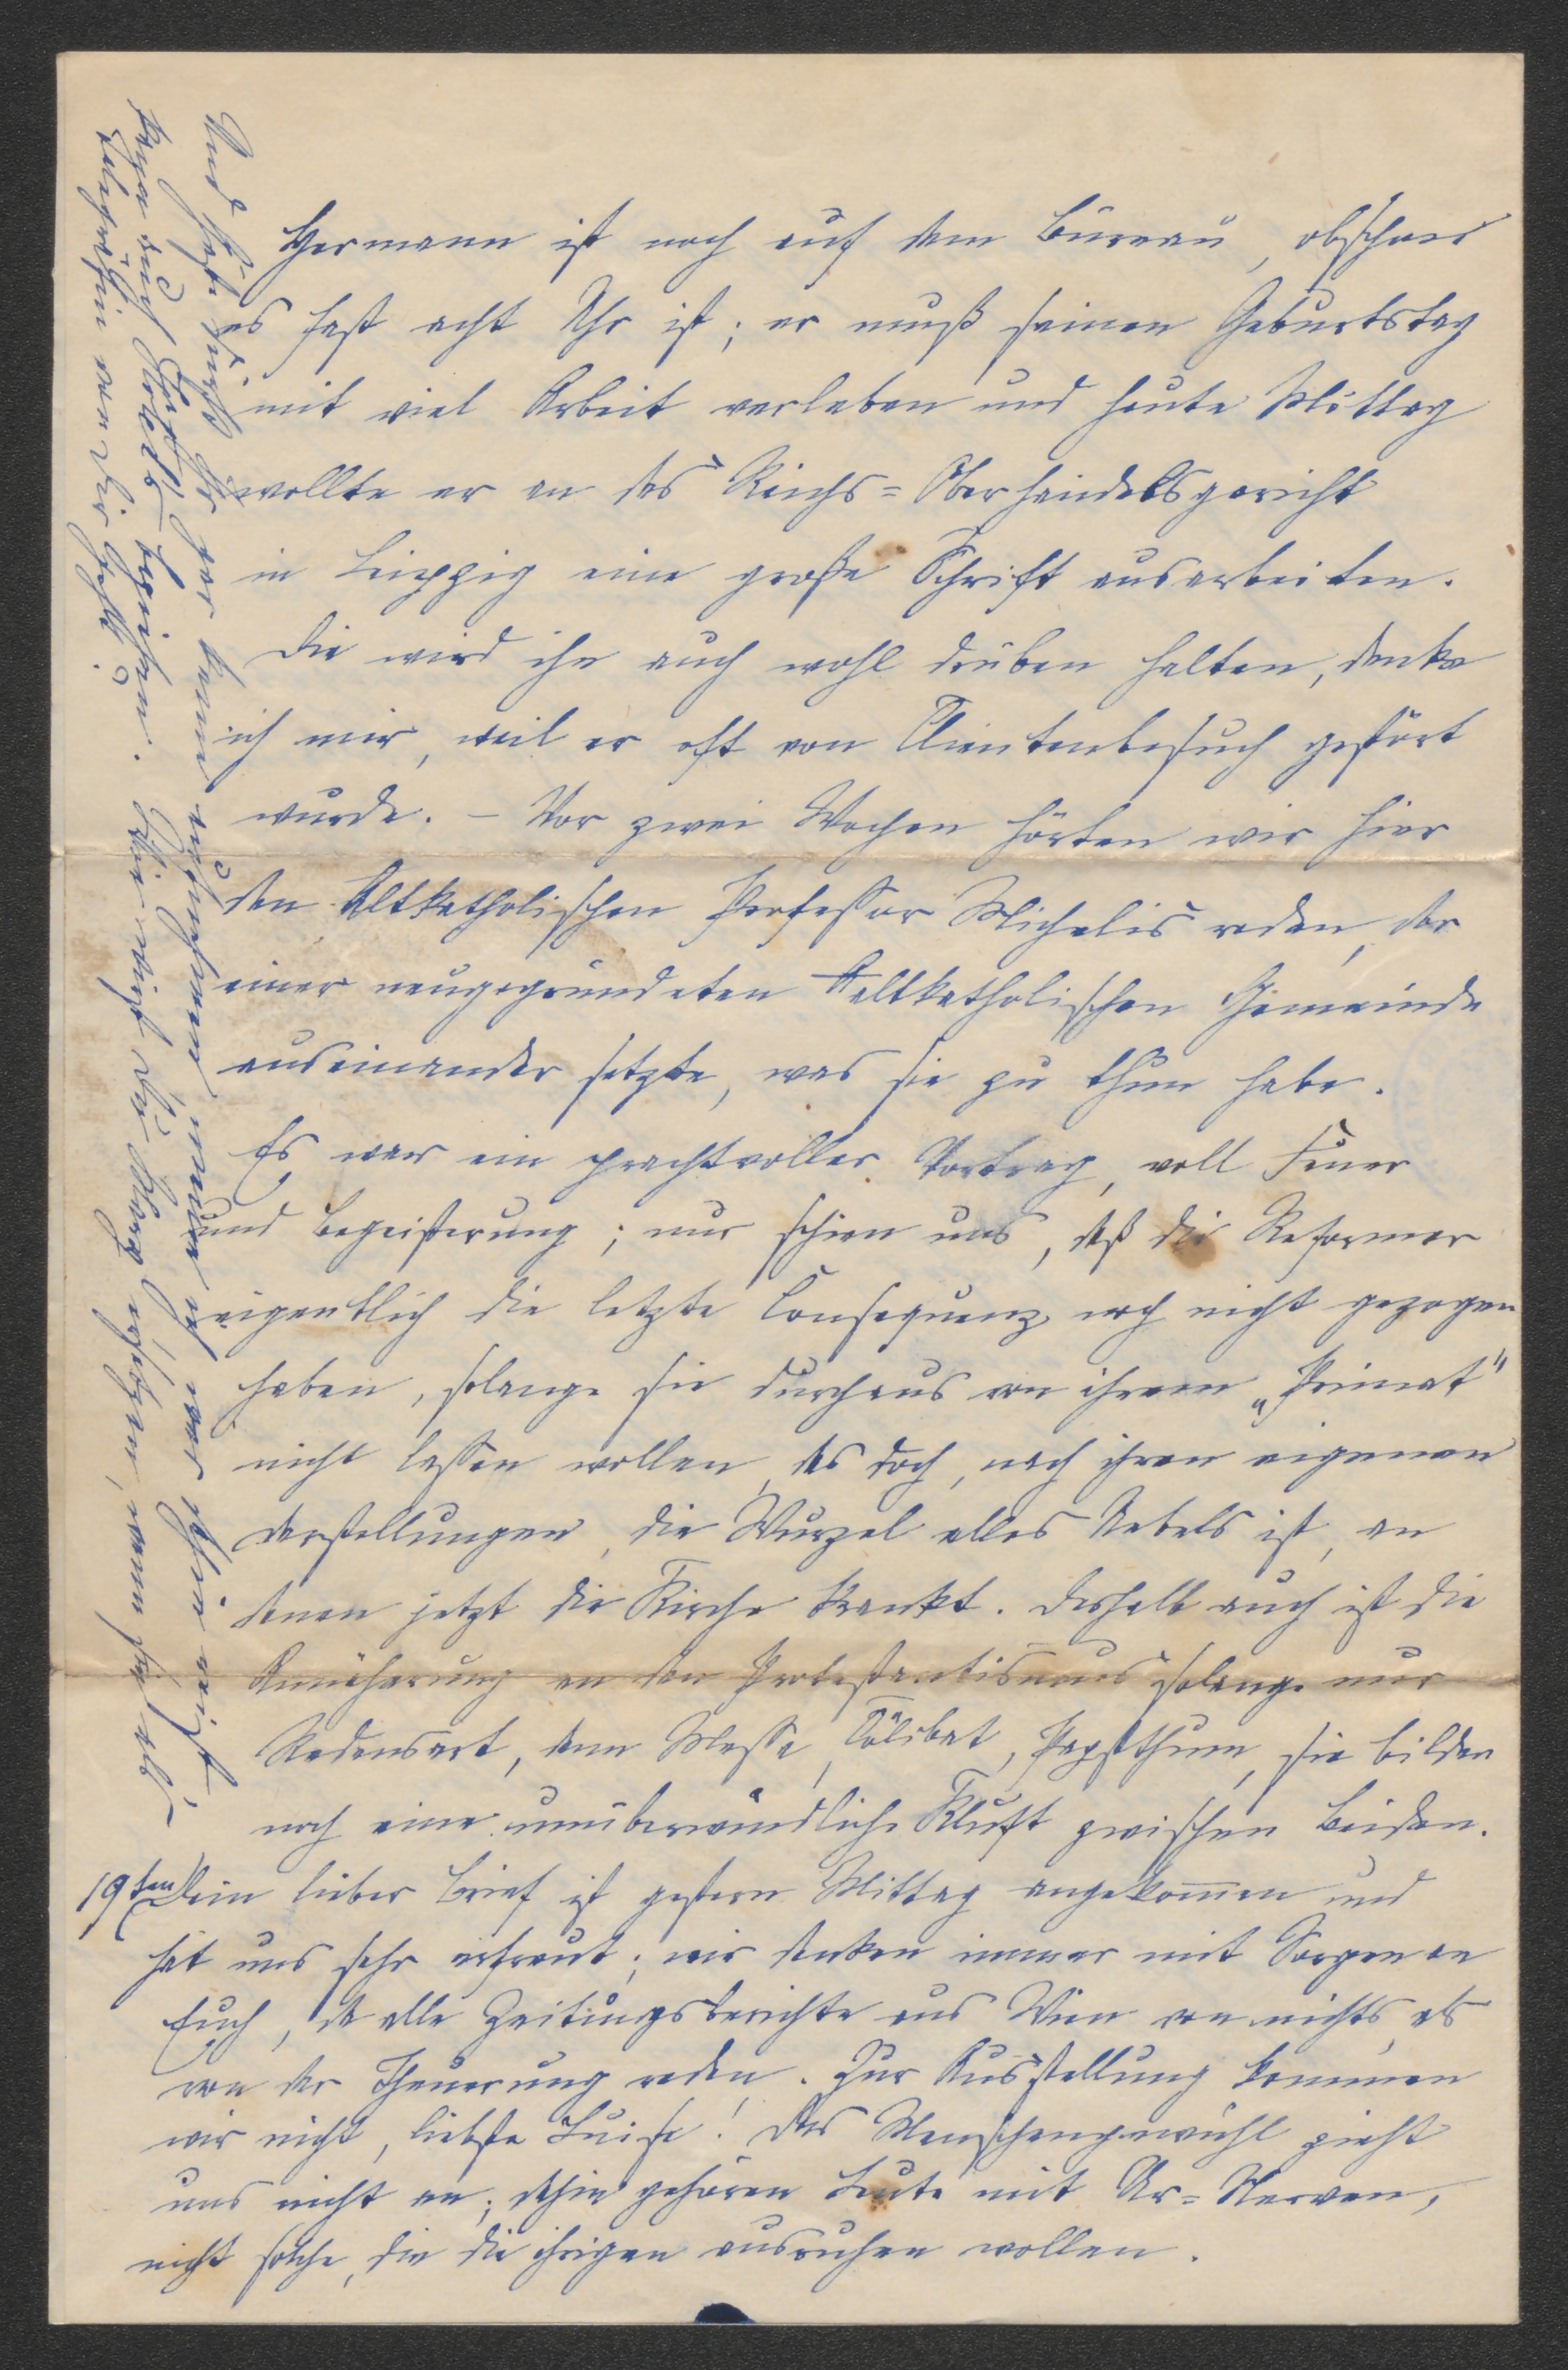 Hermann ist noch auf dem Büreau, obschon
es fast acht Uhr ist; er muß seinen Geburtstag
mit viel Arbeit verleben und heute Mittag
wollte er an das Reichs=Oberhandelsgericht
in Leipzig eine große Schrift ausarbeiten.
Die wird ihn auch wohl drüben halten, denke
ich mir, weil er oft von Clientenbesuch gestört
wurde. – Vor zwei Wochen hörten wir hier
den Altkatholischen Professor Michelis reden, der
einer neugegründeten altkatholischen Gemeinde
auseinander setzte, was sie zu thun habe.
Es war ein prachtvoller Vortrag, voll Feuer
und Begeisterung; nur schien uns, daß die Reformer
eigentlich die letzte Consequenz noch nicht gezogen
haben, solange sie durchaus von ihrem „Primat"
nicht lassen wollen, das doch, nach ihren eigenen
Darstellungen, die Wurzel alles Uebels ist, an
denen jetzt die Kirche krankt. Deshalb auch ist die
Annäherung an den Protestantismus solange nur
Redensart, denn Messe, Cölibat, Papstthum, sie bilden
noch eine unüberwindliche Kluft zwischen Beiden.
19ten Dein lieber Brief ist gestern Mittag angekommen und
hat uns sehr erfreut; wir denken immer mit Sorgen an
Euch, da alle Zeitungsberichte aus Wien von nichts als
von der Theuerung reden. Zur Ausstellung kommen
wir nicht, liebste Luise! Das Menschengewühl zieht
uns nicht an; dahin gehören Leute mit Ur=Nerven,
nicht solche, die die ihrigen ausruhen wollen.
Und jetzt dürft Ihr gar keine annehmen, man geht nicht,
Kena und Hertha begreifen. Wie wird die Sorg ergehen, wenn sie als
von Dir geht?